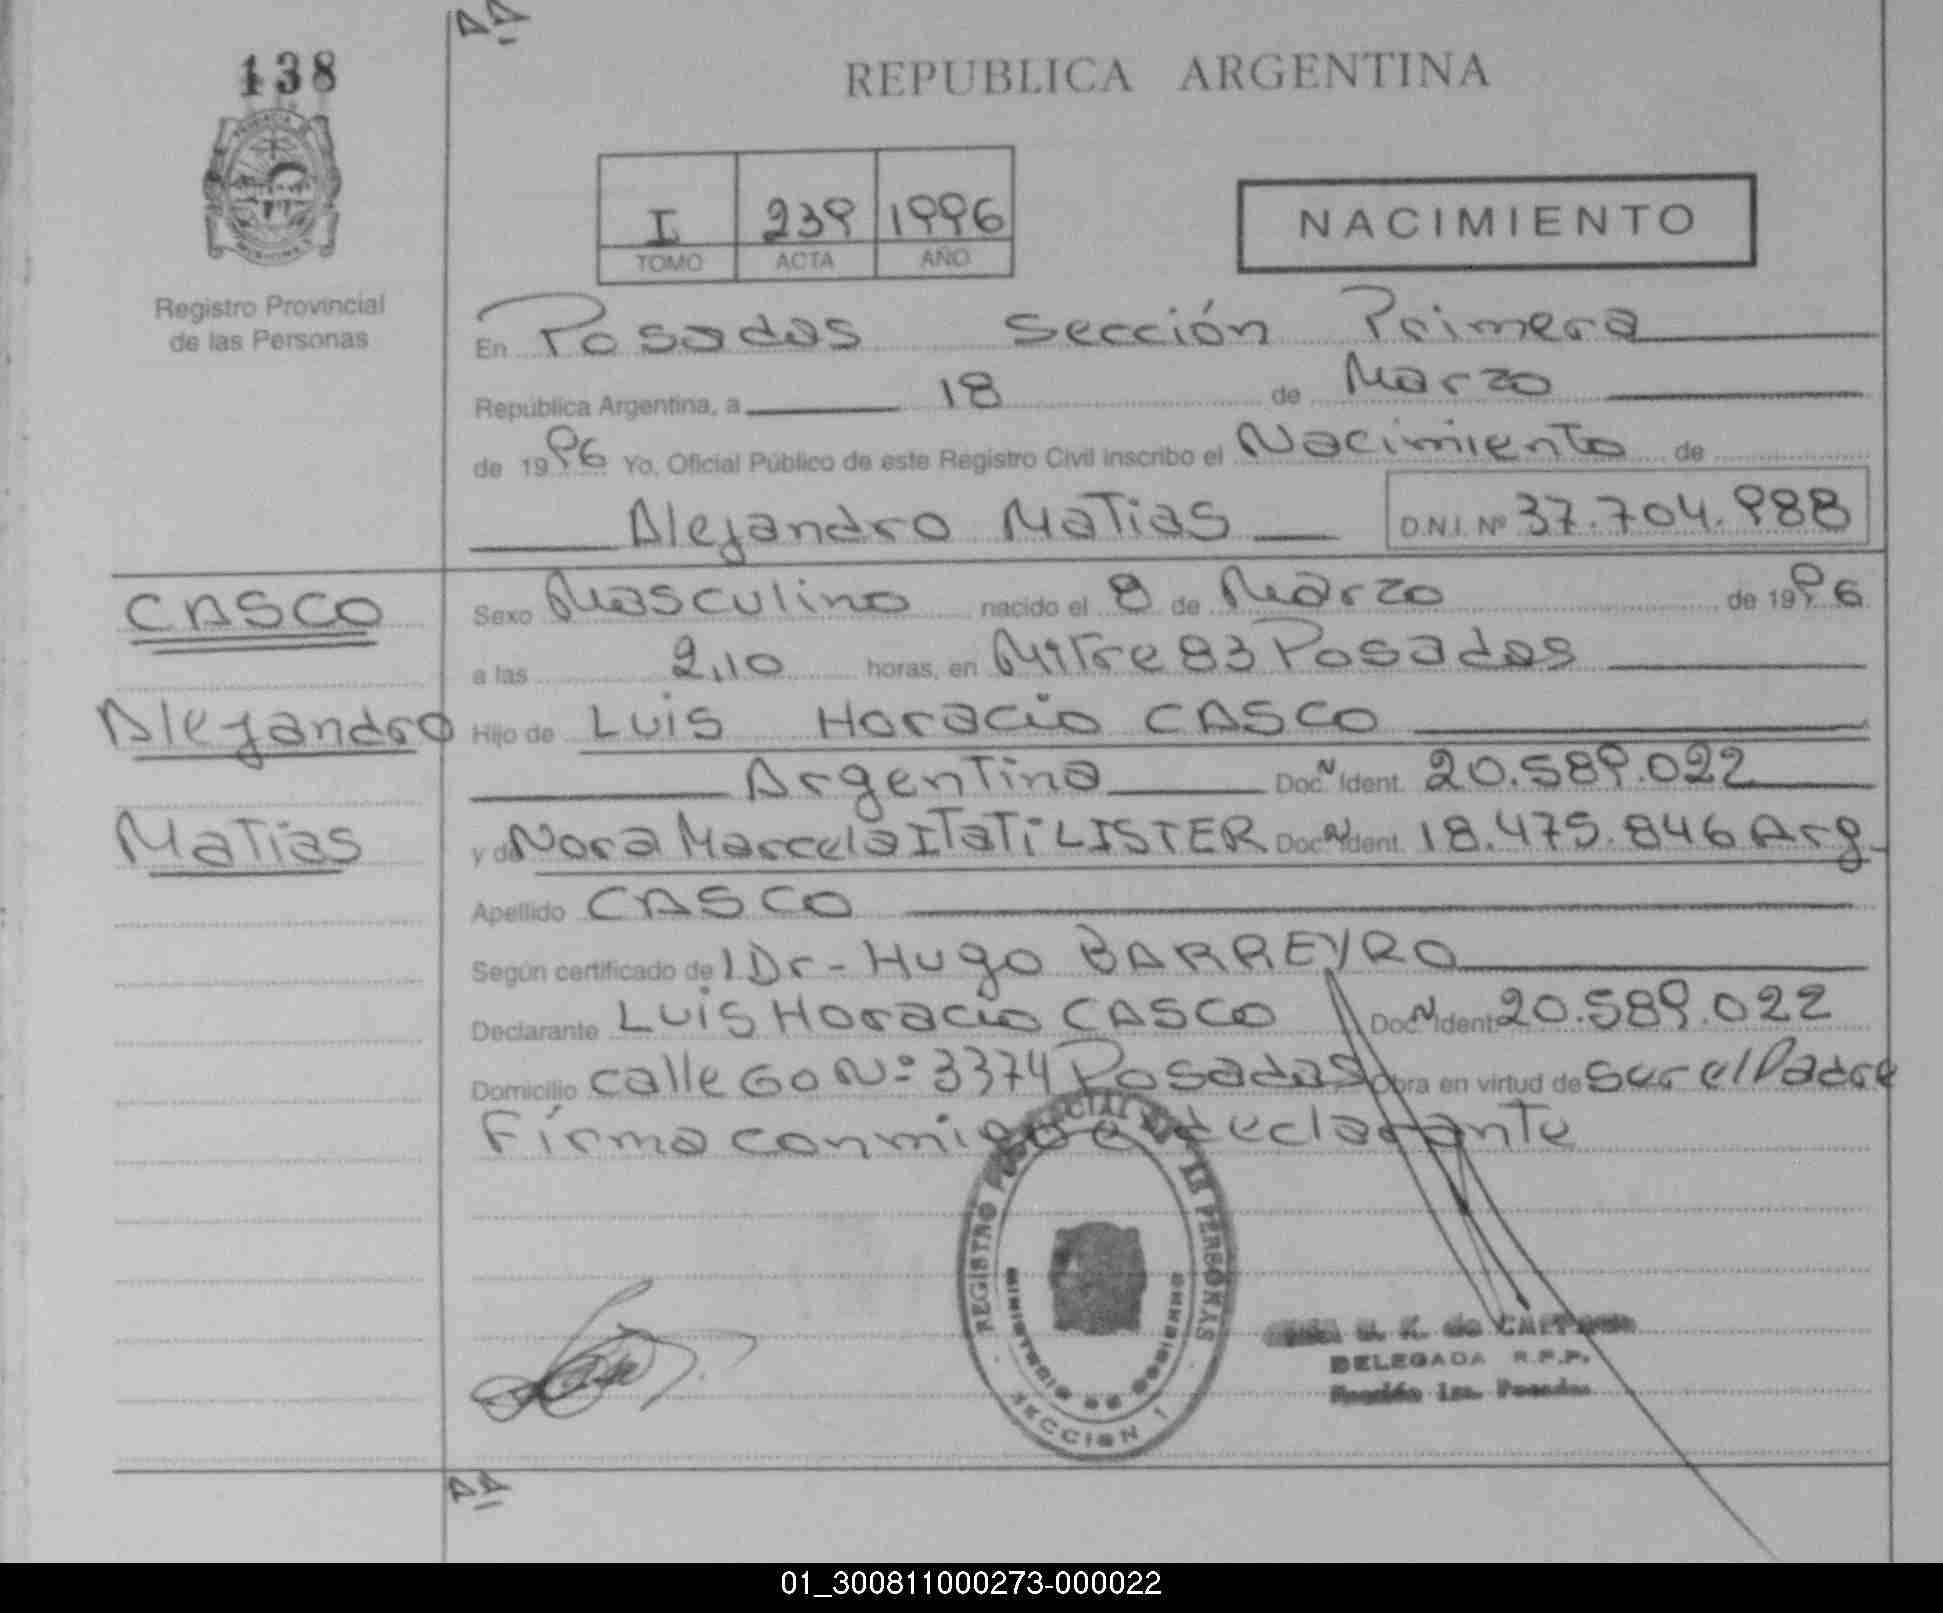 AA
138
REPUBLICA ARGENTINA
I 239 1996
TOMO ACTA AÑO
NACIMIENTO
Registro Provincial
de las Personas
En Posadas Sección Primera
República Argentina, a 18 de Marzo
de 1996 Yo, Oficial Público de este Registro Civil inscribo el Nacimiento de
Alejandro Matias D.N.I. Nº 37.704.988
CASCO
Alejandro
Matias
Sexo Masculino nacido el 8 de Marzo de 1996
a las 2,10 horas, en Mitre 83 Posadas
Hijo de Luis Horacio CASCO
Argentina Doc. N Ident. 20.589.022
y de Nora Marcela ITaTi LISTER Doc. N Ident. 18.475.846 Arg.
Apellido CASCO
Según certificado del Dr- Hugo BARREYRO
Declarante Luis Horacio CASCO Doc. N Ident. 20.589.022
Domicilio calle 60 Nº 3374 Posadas Obra en virtud de ser el Padre
Firma conmigo el declarante
REGISTRO PROVINCIAL DE LAS PERSONAS
MINISTERIO DE GOBIERNO
SECCION 1
DELEGADA R.P.P.
Sección 1ra. Posadas
AA
01_300811000273-000022